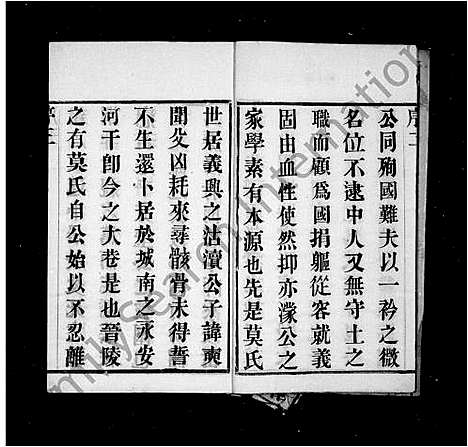 序三
公同殉國難夫以一衿之微
名位不逮中人又無守土之
職而顧爲國捐軀從容就義
固由血性使然抑亦濛公之
家學素有本源也先是莫氏
世居義興之沽瀆公子諱奭
聞父凶耗來尋骸骨未得誓
不生還卜居於城南之永安
河干卽今之大巷是也晉陵
之有莫氏自公始以不忍離